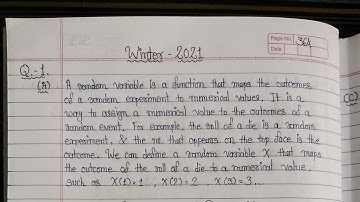 Page No.
Date
Winter - 2021
Q-1.
(A)
A random variable is a function that maps the outcomes
of a random experiment to numerical values. It is a
way to assign a numerical value to the outcomes of a
random event. For example, the roll of a die is a random
experiment, & the no. that appears on the top face is the
outcome. We can define a random variable X that maps
the outcome of the roll of a die to a numerical value,
such as X(1)=1, X(2)=2, X(3)=3....
(C)